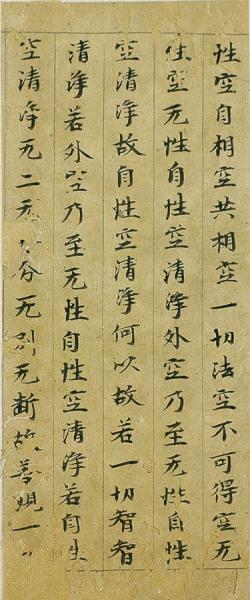 性空自相空共相空一切法空不可得空无
性空无性自性空清淨外空乃至无性自性
空清淨故自性空清淨何以故若一切智智
清淨若外空乃至无性自性空清淨若自性
空清淨无二无二分无別无斷故善現一切